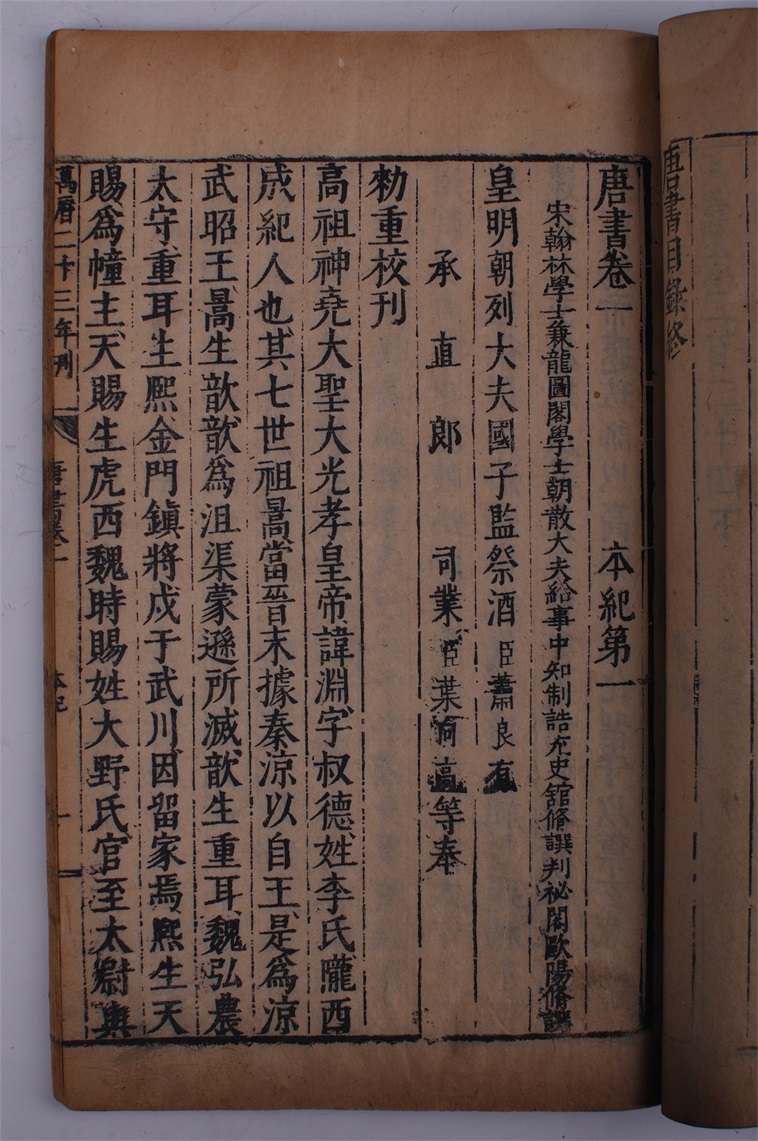 唐書目錄終
唐書卷一　本紀第一
宋翰林學士兼龍圖閣學士朝散大夫給事中知制誥充史舘脩譔判祕閣歐陽脩譔
皇明朝列大夫國子監祭酒臣蕭良有
承直郎司業臣葉向高等奉
勑重校刊
高祖神堯大聖大光孝皇帝諱淵字叔德姓李氏隴西
成紀人也其七世祖暠當晉末據秦涼以自王是為涼
武昭王暠生歆歆為沮渠蒙遜所滅歆生重耳魏弘農
太守重耳生熈金門鎮將戍于武川因留家焉熈生天
賜為幢主天賜生虎西魏時賜姓大野氏官至太尉與
萬曆二十三年刊　唐書卷一　本紀　一